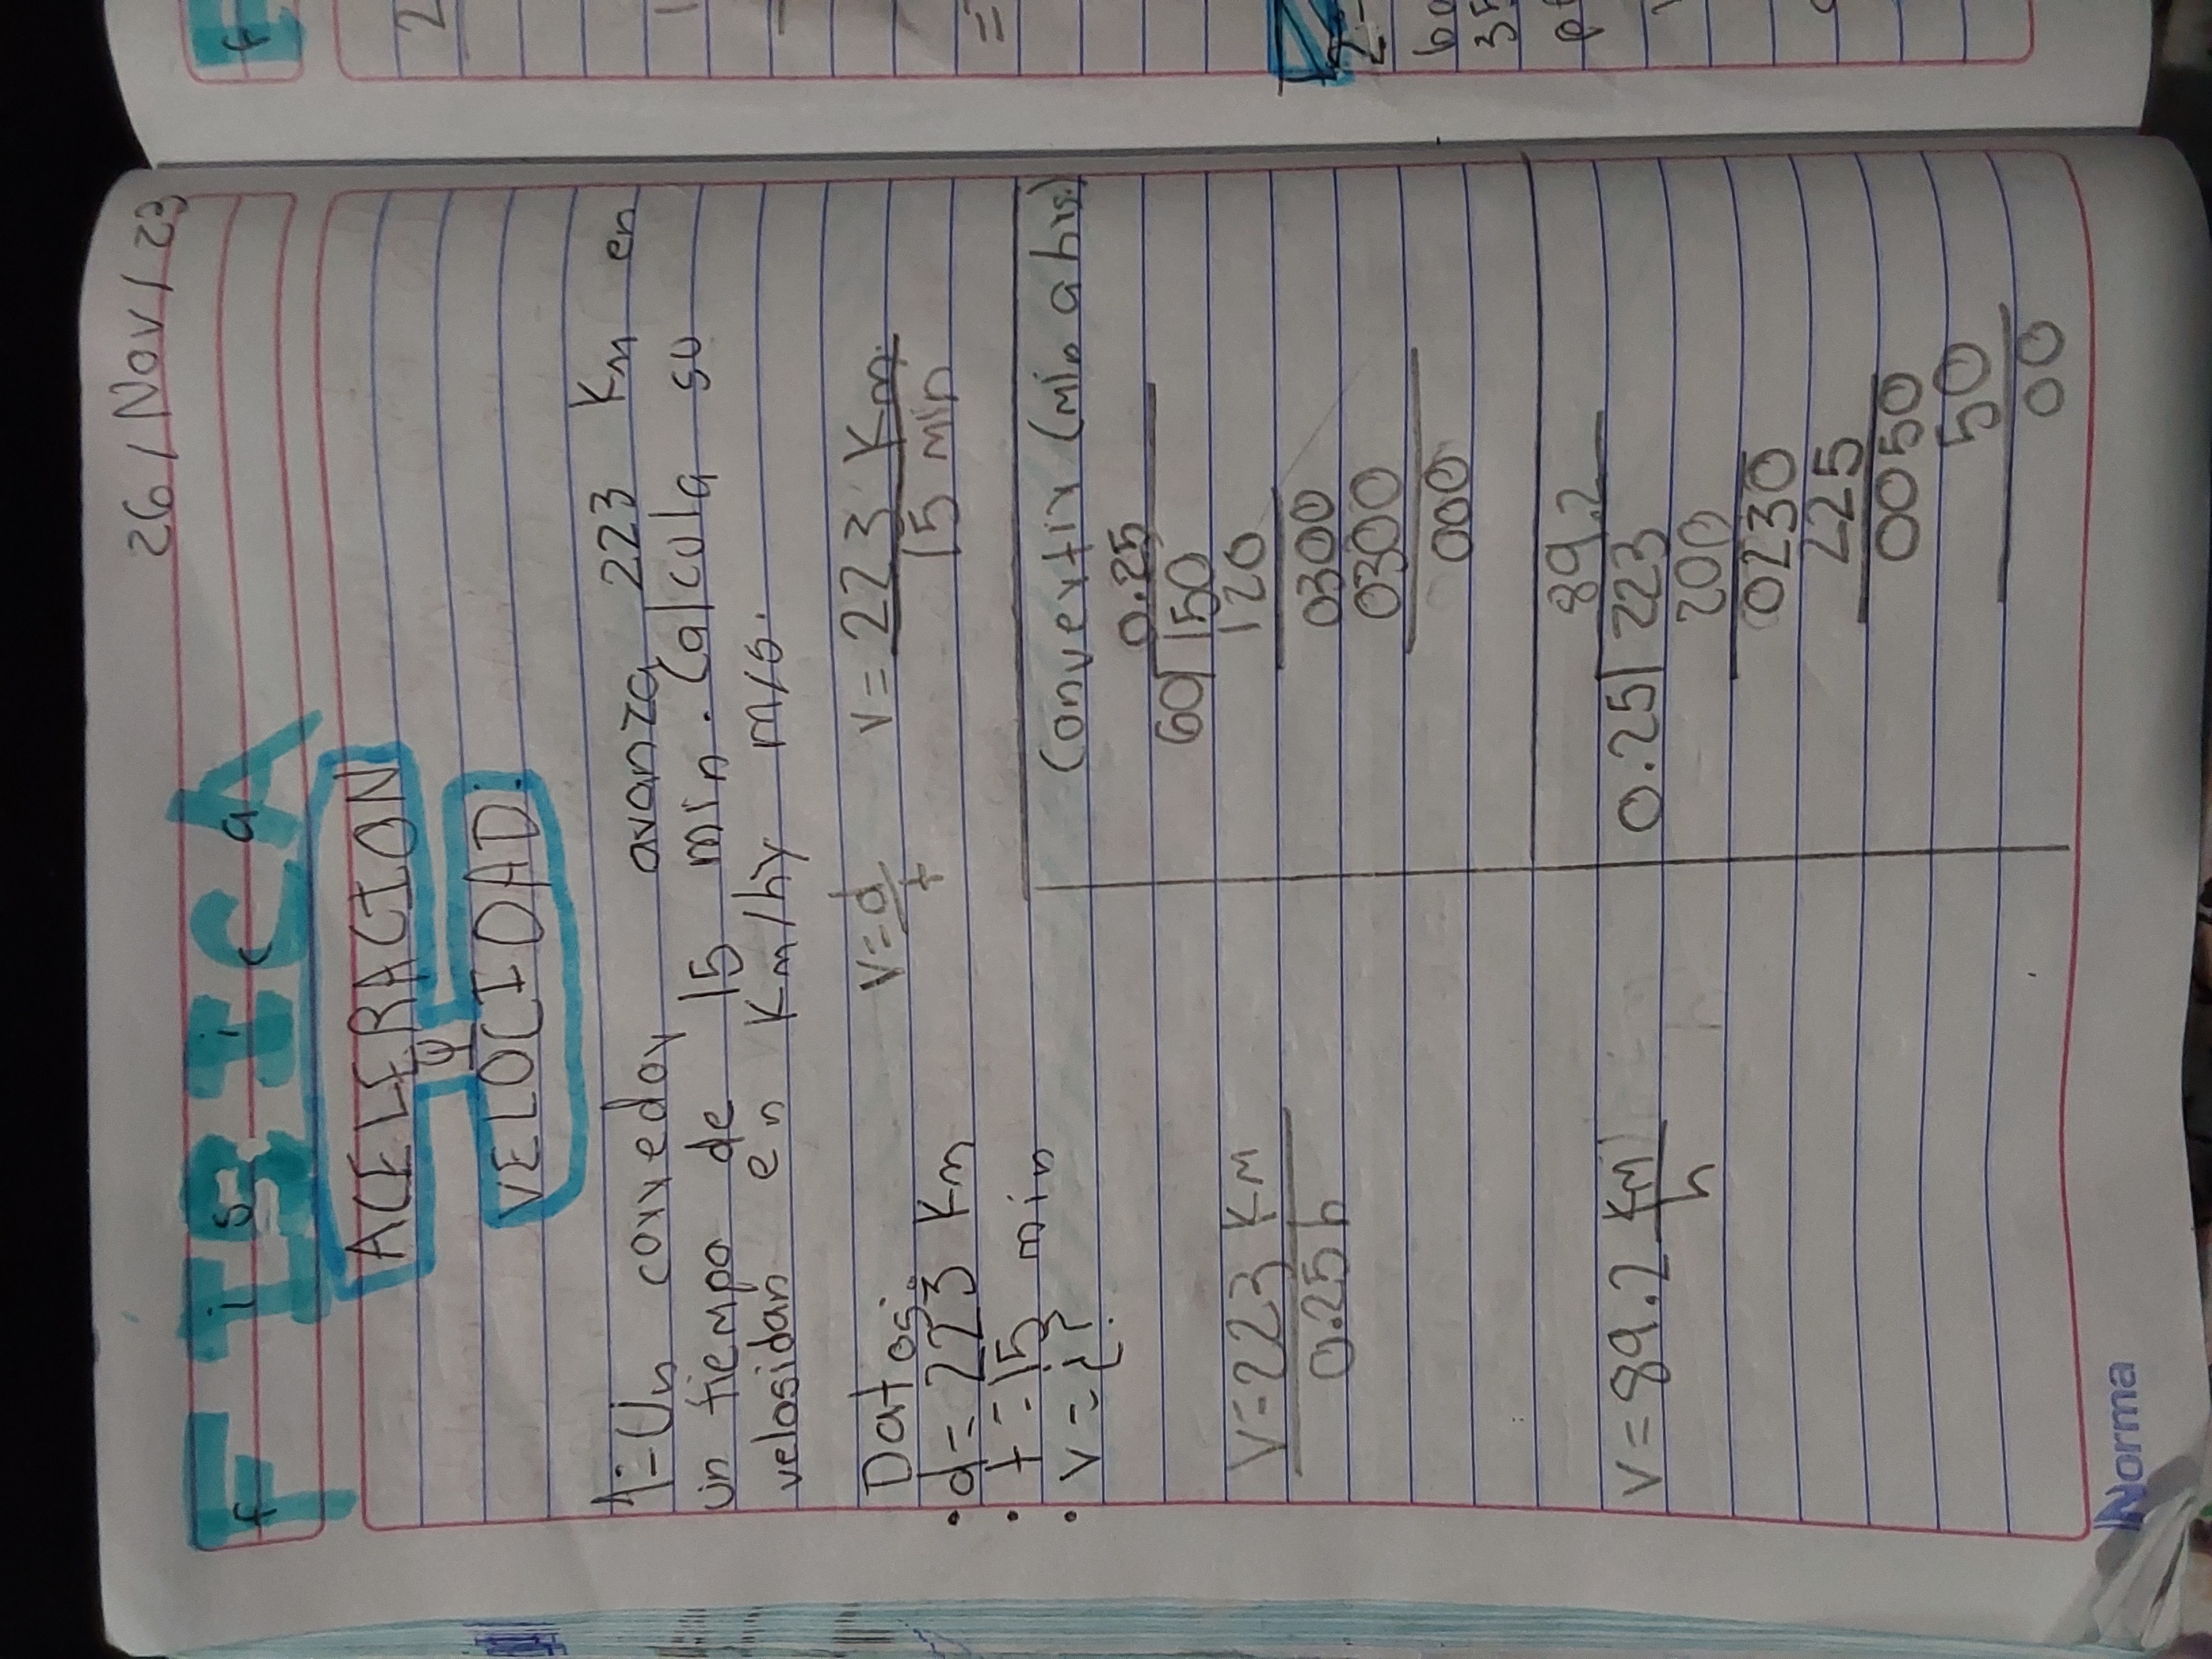 26/Nov/23
FISICA
f i s i c a
ACELERACION
y
VELOCIDAD.
1-Un corredor avanza 223 Km en
un tiempo de 15 min. Calcula su
velosidan en Km/hy m/s.
Datos: v=d/t v=223 Km/15 min
• d=223 Km
• t=15 min
• v=¿?
Convertir (min a hrs)
0.25
60|150
120
0300
0300
000
v=223 Km/0.25 h
v=89.2 Km/h
89.2
0.25|223
200
0230
225
0050
50
00
Norma